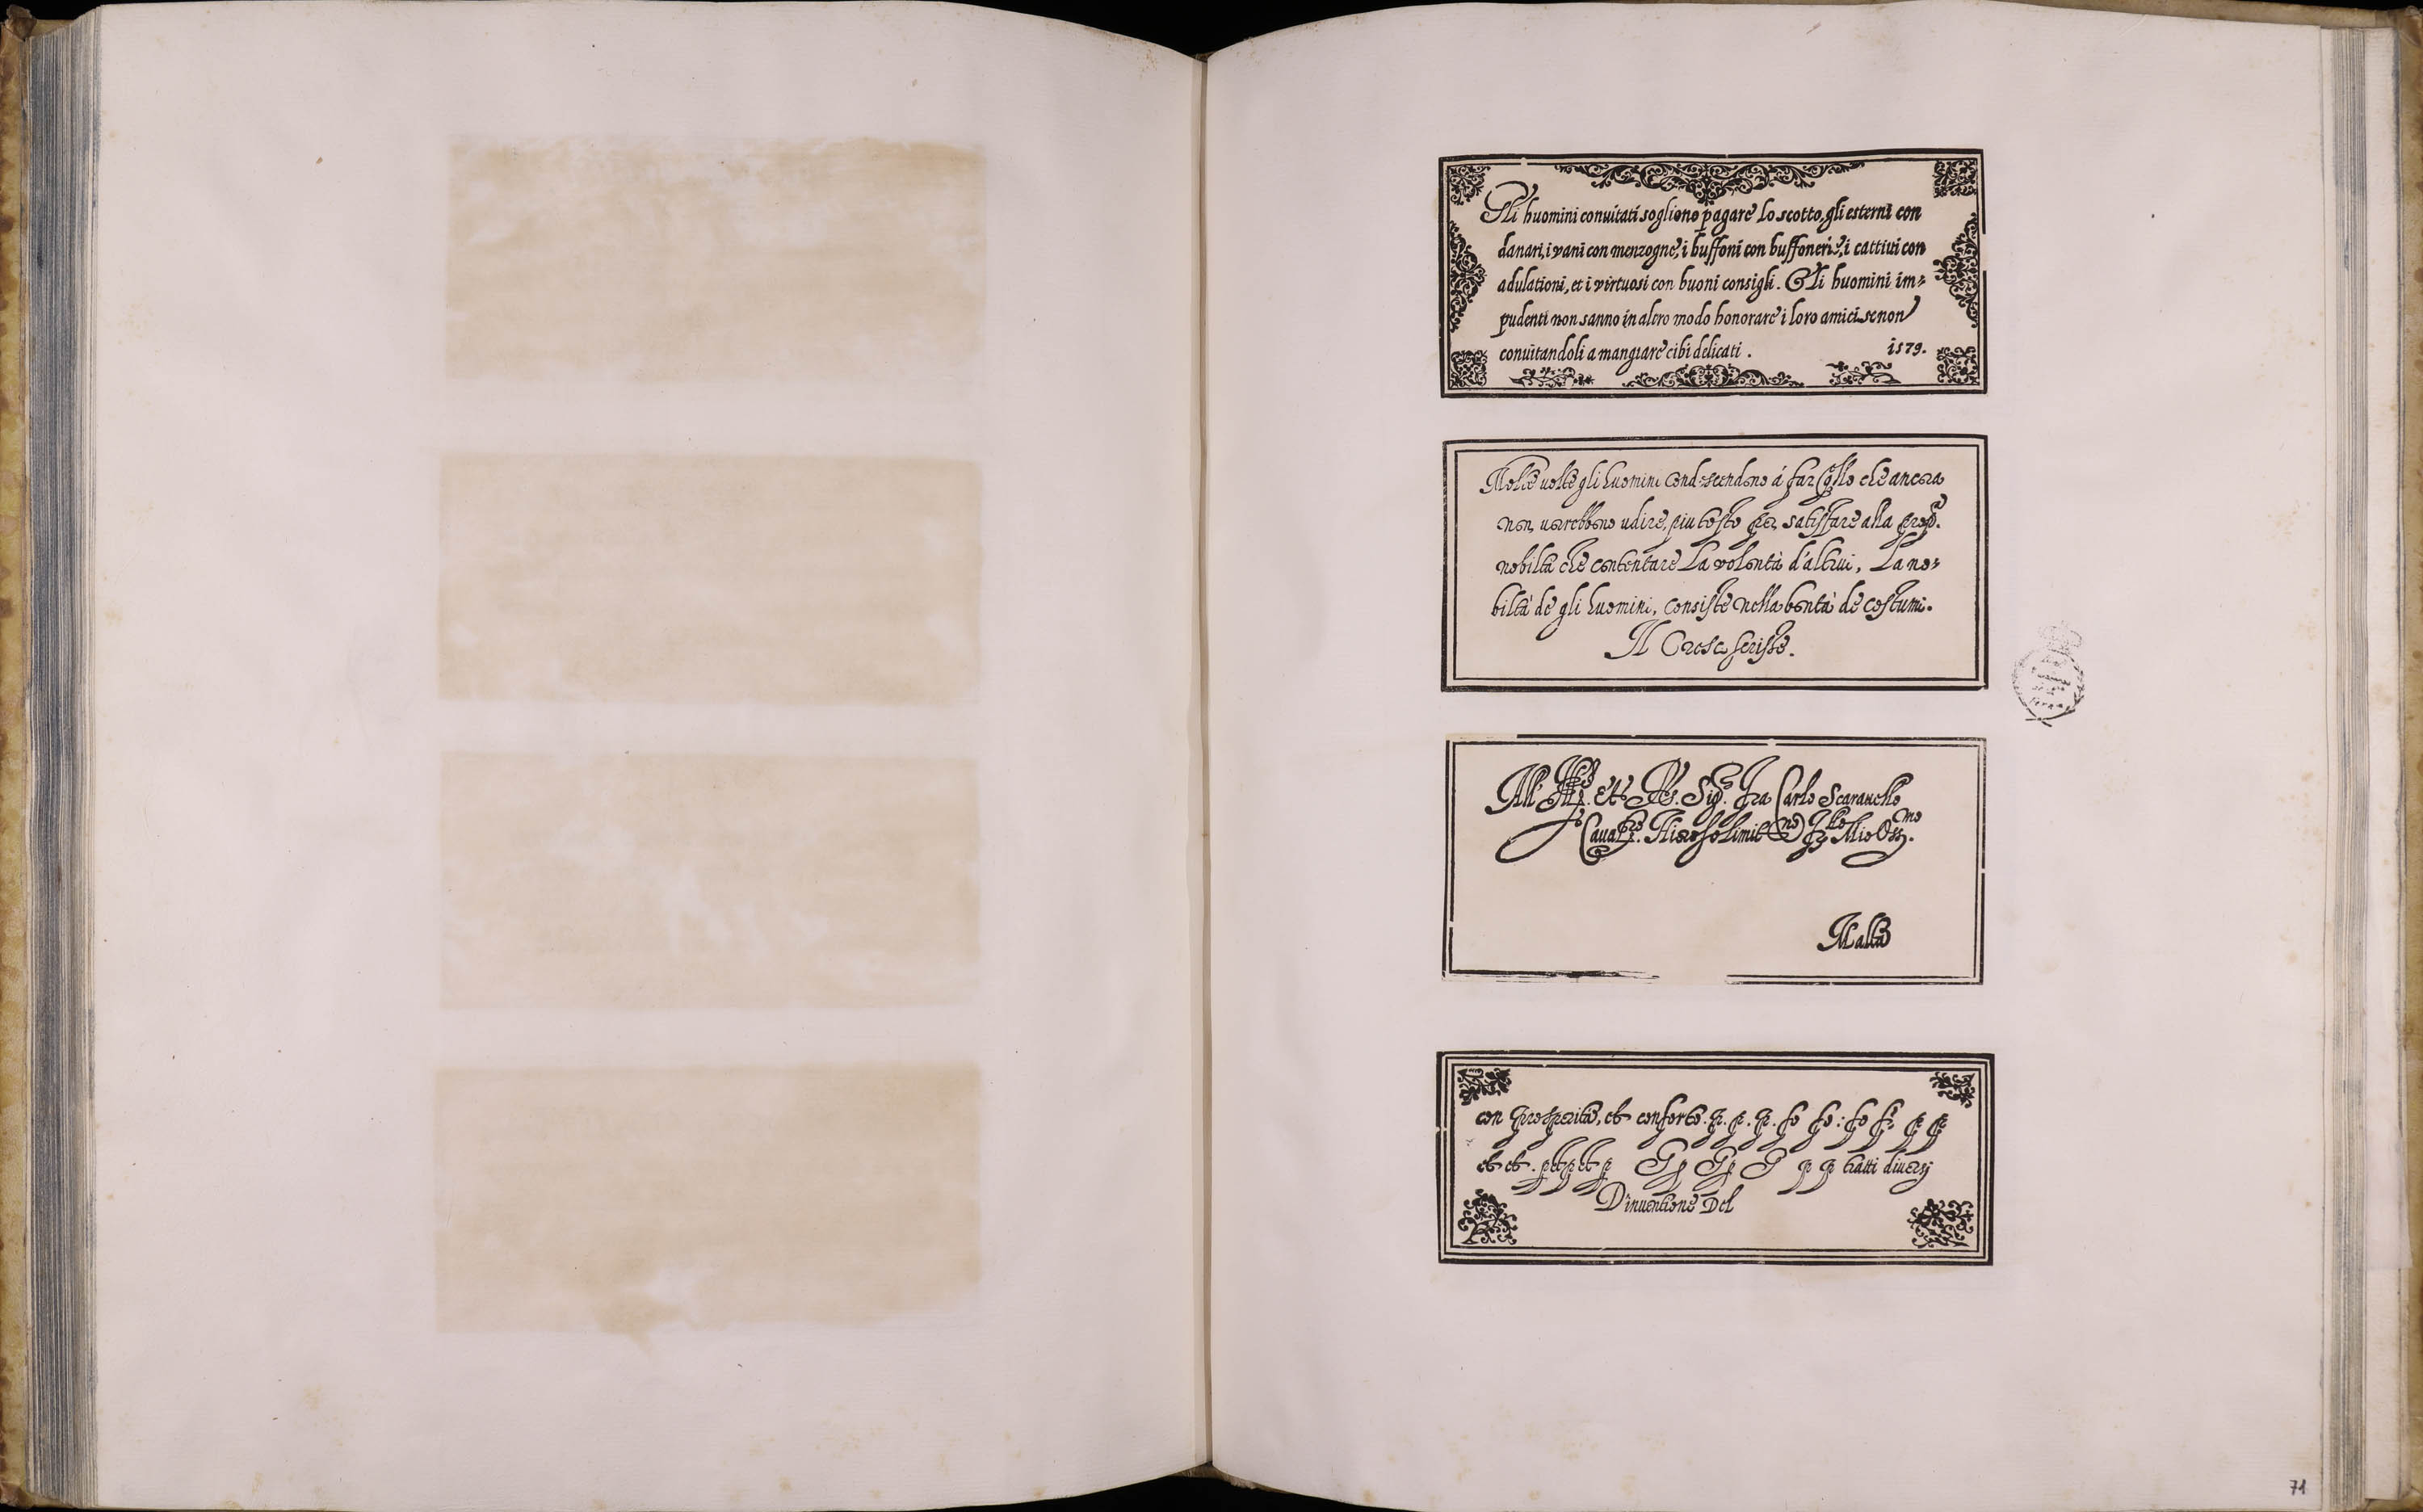 Gli huomini conuitati sogliono pagare lo scotto, gli esterni con
danari, i vani con menzogne, i buffoni con buffonerie, i cattiui con
adulationi, et i virtuosi con buoni consigli. Gli huomini im-
pudenti non sanno in altro modo honorare i loro amici, se non
conuitandoli a mangiare cibi delicati.
1579.
Molte uolte gli huomini condescendono á far quello che ancora
non uorebbono udire, piu tosto per satisfare alla
nobiltà che contentare la volontà d'altrui, La no-
biltà de gli huomini, consiste nella bontà de costumi.
Il Cresci scrisse.
All' Ill. et R. Sig. Fra Carlo
Caual. Hierosolimit Mio Oss.mo
Malta
con prosperità, et conforto. p. p. p. fo fo: fo
et et. tratti diuersj
D'inuentione Del
71